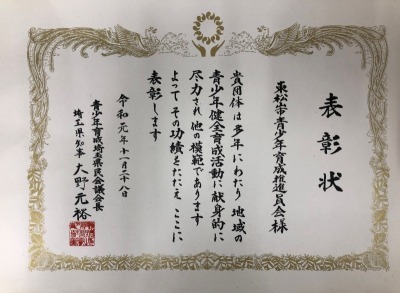 表彰状
東松山市青少年育成推進員会様
貴団体は多年にわたり 地域の
青少年健全育成活動に献身的に
尽力され 他の模範であります
よって その功績をたたえ ここに
表彰します
令和元年十一月二十八日
青少年育成埼玉県民会議会長
埼玉県知事 大野元裕